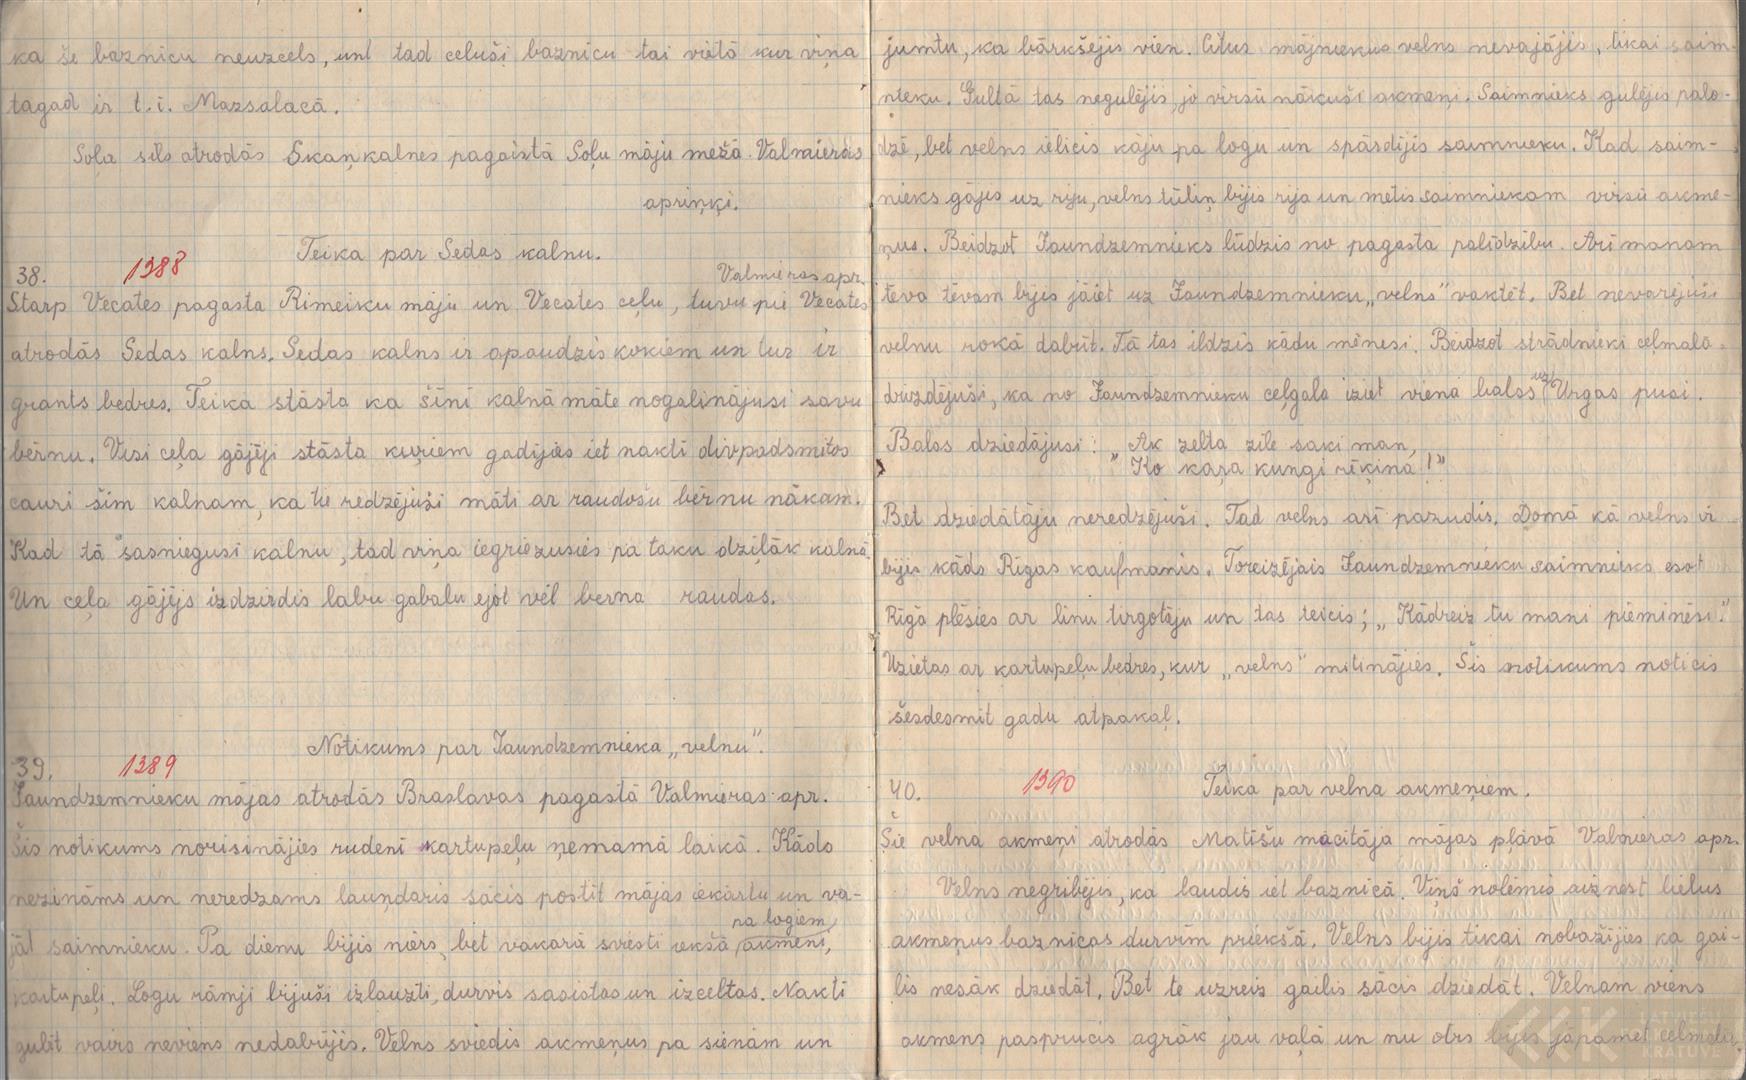 ka še baznicu neuzcels, unt tad celuši baznicu tai vietā kur viņa
tagad ir t.i. Mazsalacā.
Soļa sils atrodās Skaņkalnes pagastā Soļu māju mežā. Valmieras
apriņķi.
Teika par Sedas kalnu.
38. 1388
Valmieras apr.
Starp Vecates pagasta Rimeiku māju un Vecates ceļu, tuvu pii Vecates
atrodās Sedas kalns. Sedas kalns ir apaudzis kokiem un tur ir
grants bedres. Teika stāsta ka šīni kalnā māte nogalinājusi savu
bērnu. Visi ceļa gājēji stāsta kuŗiem gadijies iet naktī divpadsmitos
cauri šim kalnam, ka tie redzējuši māti ar raudošu bērnu nākam.
Kad tā sasniegusi kalnu, tad viņa iegriezusies pa taku dziļāk kalnā.
Un ceļa gājējs izdzirdis labu gabalu ejot vēl berna raudas.
Notikums par Jaundzemnieka „velnu”.
39. 1389
Jaundzemnieku mājas atrodās Braslavas pagastā Valmieras apr.
Šis notikums norisinājies rudenī kartupeļu ņemamā laikā. Kādo
nezināms un neredzams ļaundaris sācis postīt mājas iekārtu un va-
pa logiem
jāt saimnieku. Pa dienu bijis miers, bet vakarā sviesti iekšā akmeni,
kartupeļi. Logu rāmji bijuši izlauzti, durvis sasistas un izceltas. Naktī
gulēt vairs neviens nedabūjis. Velns sviedis akmeņus pa sienām un
jumtu, ka bārkšējis vien. Citus mājniekus velns nevajājis, tikai saim-
nieku. Gultā tas negulējis, jo virsū nākuši akmeņi. Saimnieks gulējis palo-
dzē, bet velns ielicis kāju pa logu un spārdijis saimnieku. Kad saim-
nieks gājis uz riju, velns tūliņ bijis rija un metis saimniekam virsū akme-
ņus. Beidzot Jaundzemnieks lūdzis no pagasta palīdzību. Arī manam
tēva tēvam bijis jāiet uz Jaundzemnieku „velns” vaktēt. Bet nevarējuši
velnu rokā dabūt. Tā tas ildzis kādu mēnesi. Beidzot strādnieki ceļmalā
dzirdējuši, ka no Jaundzemnieku ceļgala iziet viena balss uz Urgas pusi.
Balss dziedājusi: „Ak zelta zīle saki man,
„Ko kaŗa kungi rīķina!”
Bet dziedātāju neredzējuši. Tad velns arī pazudis. Domā kā velns ir
bijis kāds Rīgas kaufmanis. Toreizējais Jaundzemnieku saimnieks esot
Rīgā plēsies ar linu tirgotāju un tas teicis; „Kādreiz tu mani pieminēsi.”
Uzietas ar kartupeļu bedres, kur „velns” mitinājies. Šis notikums noticis
šesdesmit gadu atpakaļ.
40. 1390 Teika par velna akmeņiem.
Šie velna akmeņi atrodās Matīšu mācitāja mājas pļāvā Valmieras apr.
Velns negribējis, ka laudis iet baznicā. Viņš nolēmis aiznest lielus
akmeņus baznicas durvīm priekšā. Velns bijis tikai nobažijies ka gai-
lis nesāk dziedāt. Bet te uzreiz gailis sācis dziedāt. Velnam viens
akmens pasprucis agrāk jau vaļā un nu otrs bijis jāpamet celmalā.
LATVIEŠU
KRĀTUVE